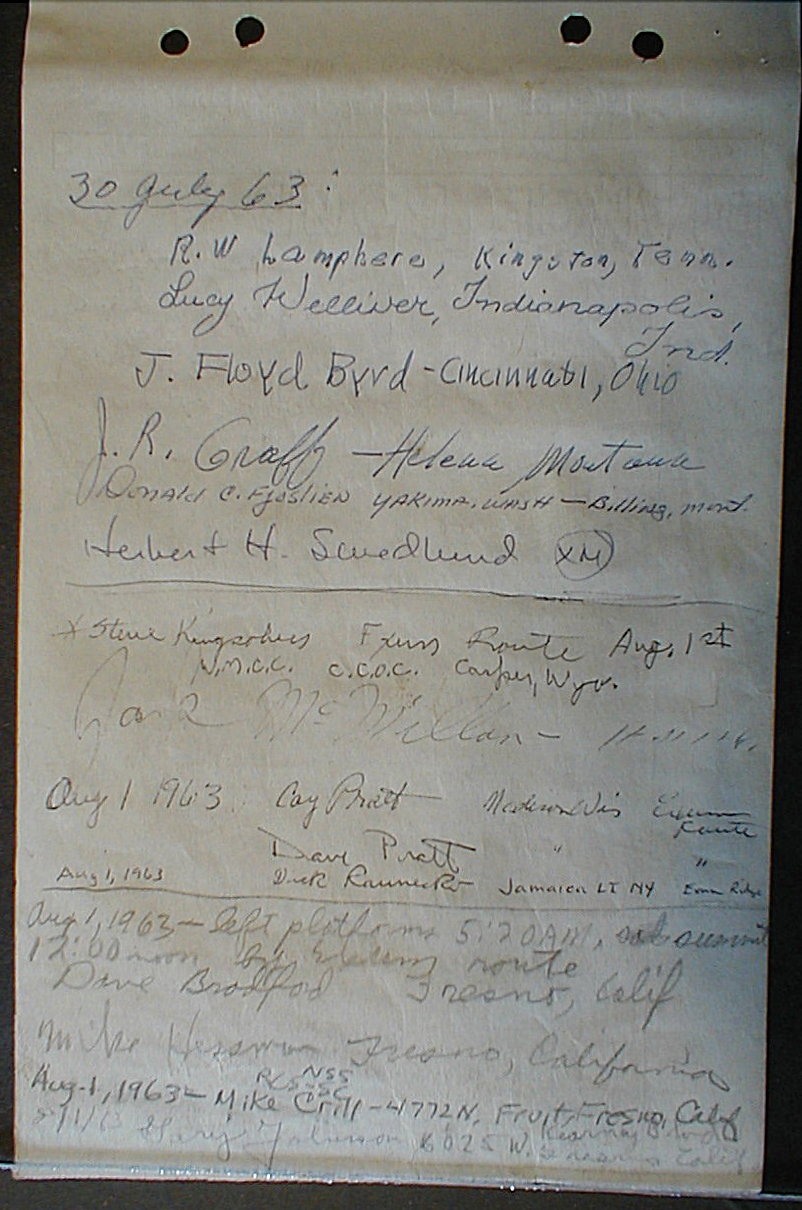 30 July 63:
R.W Lamphere, Kingston, Tenn.
Lucy Welliver, Indianapolis,
Ind.
J. Floyd Byrd - Cincinnati, Ohio
J. R. Graff - Helena Montana
Donald C. Fjoslien Yakima, Wash - Billing, Mont.
Herbert H. Swedlund XM
x Steve Exum Route Aug. 1st
W.M.C.C. C.C.O.C. Casper, Wyo.
Jack McMillan -
Aug 1 1963 Cay Pratt Madison Wis Exum
Route
Dave Pratt " "
Aug 1, 1963 Dick Jamaica LI NY Exum Ridge
Aug 1, 1963 - left platforms 5:20 AM, summit
12:00 noon by Exum route
Dave Bradford Fresno, Calif
Mike Fresno, California
NSS
Aug-1, 1963 - Mike Crill - 4772 N. Fruit, Fresno, Calif
8/1/63 Gary Johnson 6025 W. Kearney Blvd
Calif